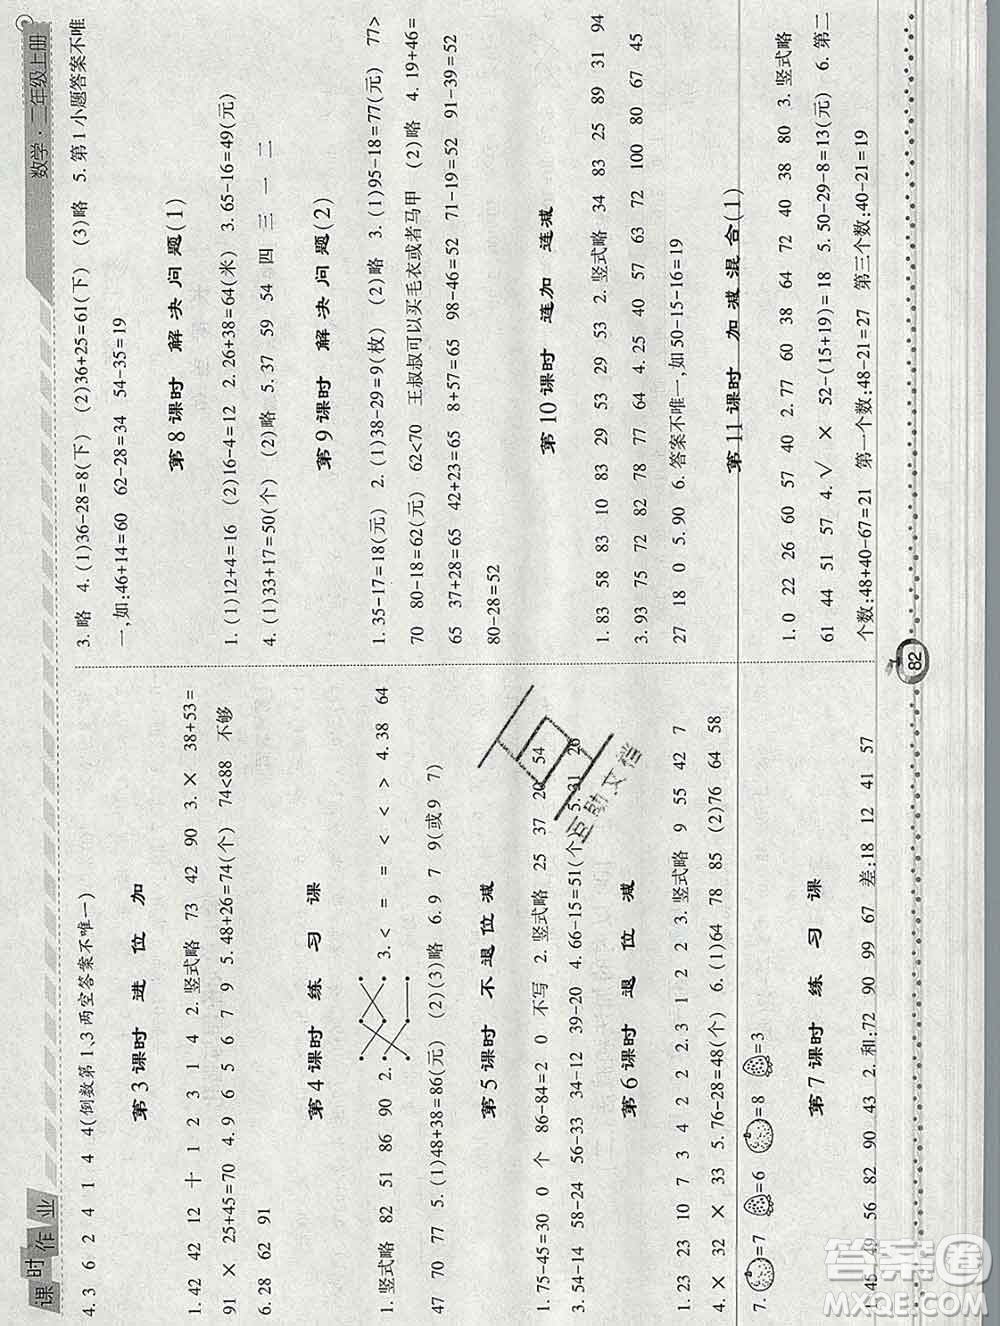 课时作业
4. 3 6 2 4 1 4 4(倒数第1、3两空答案不唯一)
第3课时 进位加
1. 42 42 12 十 1 2 3 1 4 2. 竖式略 73 42 90 3. × 38+53=
91 × 25+45=70 4. 9 6 5 6 7 9 5. 48+26=74(个) 74<88 不够
6. 28 62 91
第4课时 练习课
1. 竖式略 82 51 86 90 2. 3. < = = < < > 4. 38 64
47 70 77 5. (1)48+38=86(元) (2)(3)略 6. 9 7 9(或9 7)
第5课时 不退位减
1. 75-45=30 0 个 86-84=2 0 不写 2. 竖式略 25 37 20 54
3. 54-14 58-24 56-33 34-12 39-20 4. 66-15=51(个) 5. 31 26
第6课时 退位减
1. 23 23 10 7 3 4 2 2. 3 1 2 2 3. 竖式略 9 55 42 7
4. × 32 × 33 5. 76-28=48(个) 6. (1)64 78 85 (2)76 64 58
7. =7 =6 =8 =3
第7课时 练习课
1. 45 49 56 82 90 43 2. 和:72 90 99 67 差:18 12 41 57
数学·二年级上册
3. 略 4. (1)36-28=8(下) (2)36+25=61(下) (3)略 5. 第1小题答案不唯
一,如:46+14=60 62-28=34 54-35=19
第8课时 解决问题(1)
1. (1)12+4=16 (2)16-4=12 2. 26+38=64(米) 3. 65-16=49(元)
4. (1)33+17=50(个) (2)略 5. 37 59 54 四 三 一 二
第9课时 解决问题(2)
1. 35-17=18(元) 2. (1)38-29=9(枚) (2)略 3. (1)95-18=77(元) 77>
70 80-18=62(元) 62<70 王叔叔可以买毛衣或者马甲 (2)略 4. 19+46=
65 37+28=65 42+23=65 8+57=65 98-46=52 71-19=52 91-39=52
80-28=52
第10课时 连加 连减
1. 83 58 83 10 83 29 53 29 53 2. 竖式略 34 83 25 89 31 94
3. 93 75 72 82 78 77 64 4. 25 40 57 63 72 100 80 67 45
27 18 0 5. 90 6. 答案不唯一,如50-15-16=19
第11课时 加减混合(1)
1. 0 22 26 60 57 40 2. 77 60 38 64 72 40 38 80 3. 竖式略
61 44 51 57 4. √ × 52-(15+19)=18 5. 50-29-8=13(元) 6. 第二
个数:48+40-67=21 第一个数:48-21=27 第三个数:40-21=19
82
答案圈
MXQE.COM